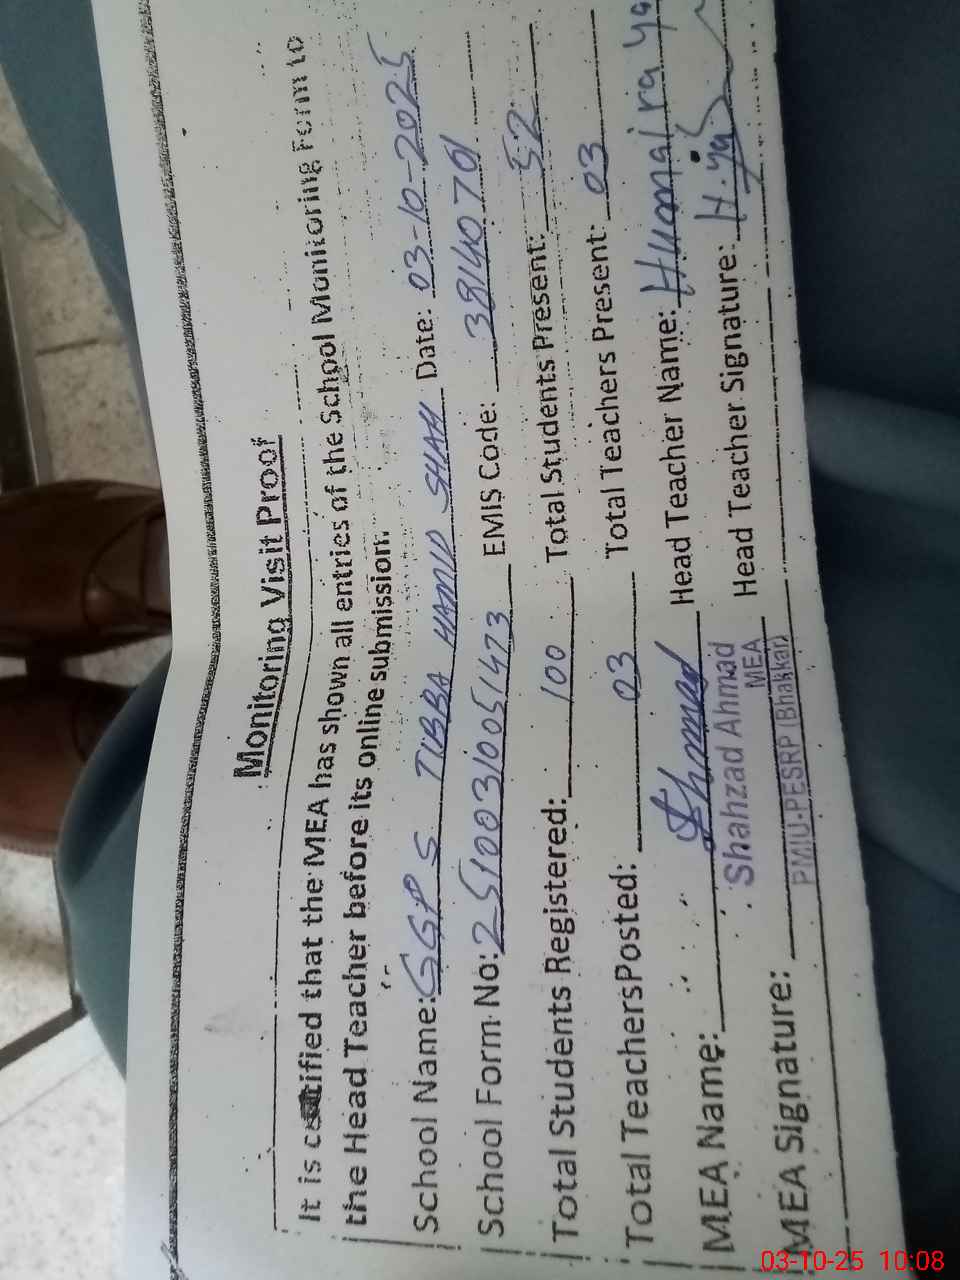 Monitoring Visit Proof
It is certified that the MEA has shown all entries of the School Monitoring Form to
the Head Teacher before its online submission.
School Name: GGPS TIBBA HAMID SHAH Date: 03-10-2025
School Form No: 25100310051473 EMIS Code: 38140701
Total Students Registered: 100 Total Students Present: 52
Total Teachers Posted: 03 Total Teachers Present: 03
MEA Name: Head Teacher Name: Humaira
Shahzad Ahmad
MEA
PMIU-PESRP (Bhakkar)
MEA Signature: Head Teacher Signature:
03-10-25 10:08